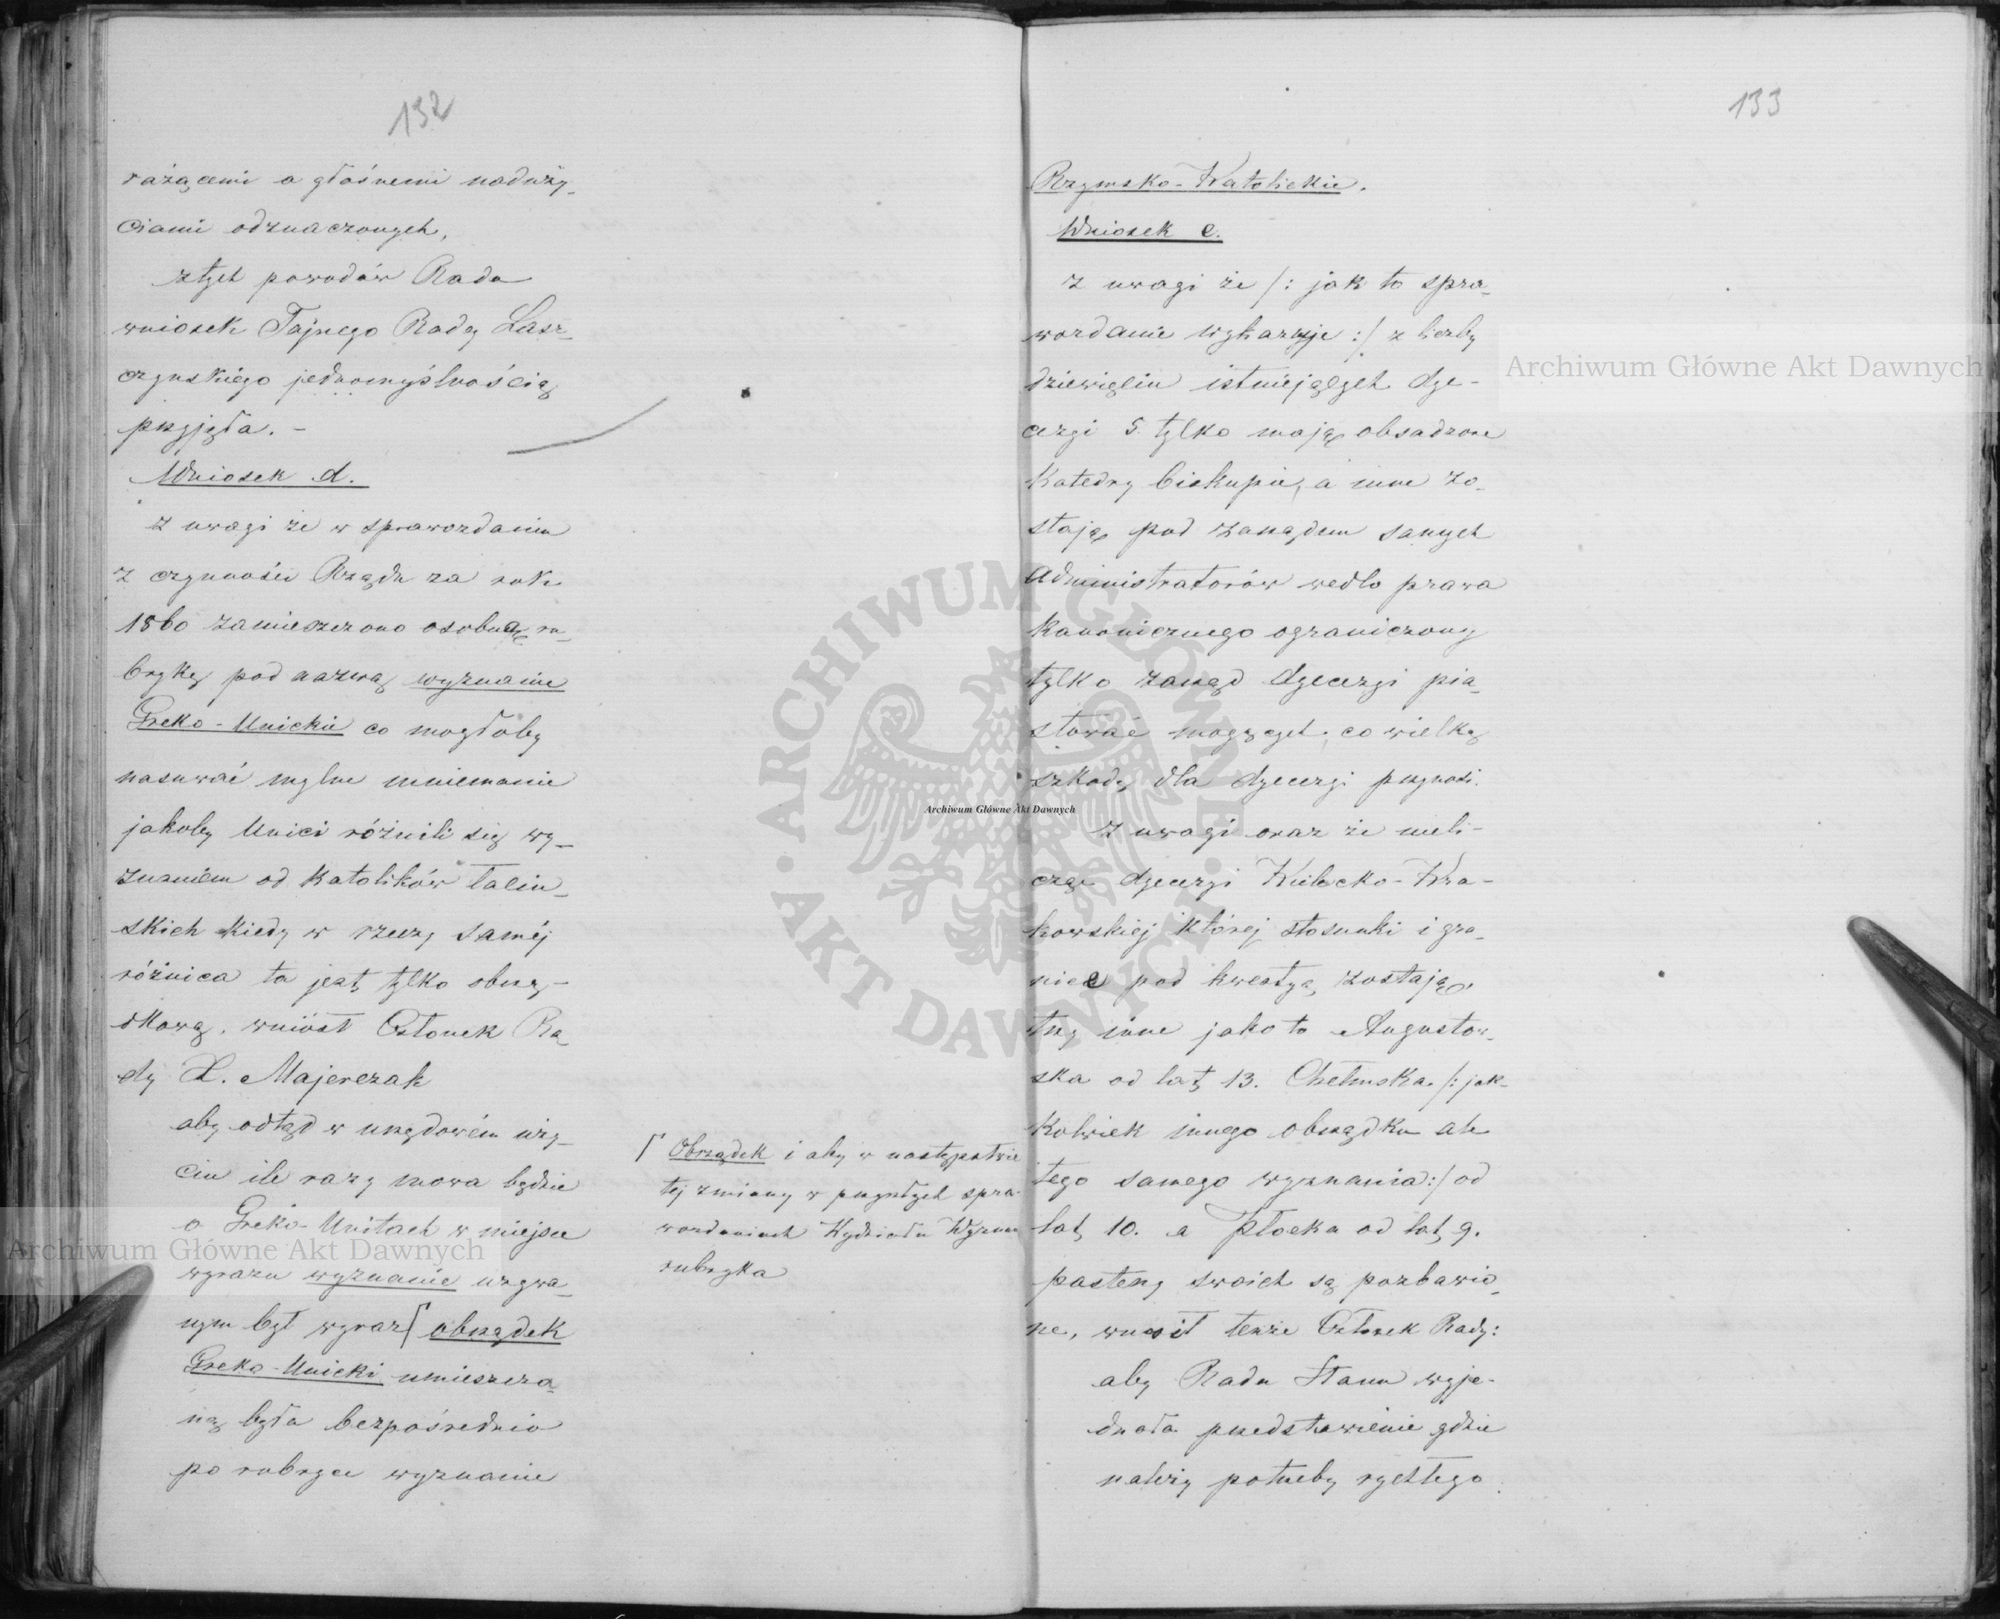 132
rażącemi a głośnemi naduży-
ciami odznaczonych,
z tych powodów Rada
wniosek Tajnego Radcy Łasz-
czyńskiego jednomyślnością
przyjęła. -
Wniosek d.
Z uwagi że w sprawozdaniu
z czynności Rządu za rok
1860 zamieszczono osobną ru-
brykę pod nazwą wyznanie
Greko-Unickie co mogłoby
nasuwać mylne mniemanie
jakoby Unici różnili się wy-
znaniem od Katolików łaciń-
skich kiedy w rzeczy samej
różnica ta jest tylko obrzą-
dkową, wniósł Członek Ra-
dy X. Majerczak
aby odtąd w urzędowém uży-
ciu ile razy mowa będzie
o Greko-Unitach w miejsce
wyrazu wyznanie używa-
nym był wyraz ⌈ obrządek
Greko-Unicki umieszczo-
ną była bezpośrednio
po rubryce wyznanie
⌈ Obrządek i aby w następstwie
tej zmiany w przyszłych spra-
wozdaniach Wydziału Wyznań
rubryka
133
Rzymsko-Katolickie.
Wniosek e.
Z uwagi że /: jak to spra-
wozdanie wykazuje :/ z liczby
dziewięciu istniejących dye-
cezyi 5. tylko mają obsadzone
Katedry biskupie, a inne zo-
stają pod zarządem samych
Administratorów wedle prawa
kanonicznego ograniczony
tylko zarząd dyecezyi pia-
stować mogących, co wielką
szkodę dla dyecezyi przynosi.
Z uwagi oraz że nieli-
cząc dyecezyi Kielecko-Kra-
kowskiej której stosunki i gra-
nice pod kwestyą zostają,
trzy inne jako to Augustow-
ska od lat 13. Chełmska /: jak-
kolwiek innego obrządku ale
tego samego wyznania :/ od
lat 10. a Płocka od lat 9.
pasterzy swoich są pozbawio-
ne, wnosił tenże Członek Rady:
aby Rada Stanu wyje-
dnała przedstawienie gdzie
należy potrzeby rychłego
Archiwum Główne Akt Dawnych
Archiwum Główne Akt Dawnych
Archiwum Główne Akt Dawnych
ARCHIWUM GŁÓWNE AKT DAWNYCH